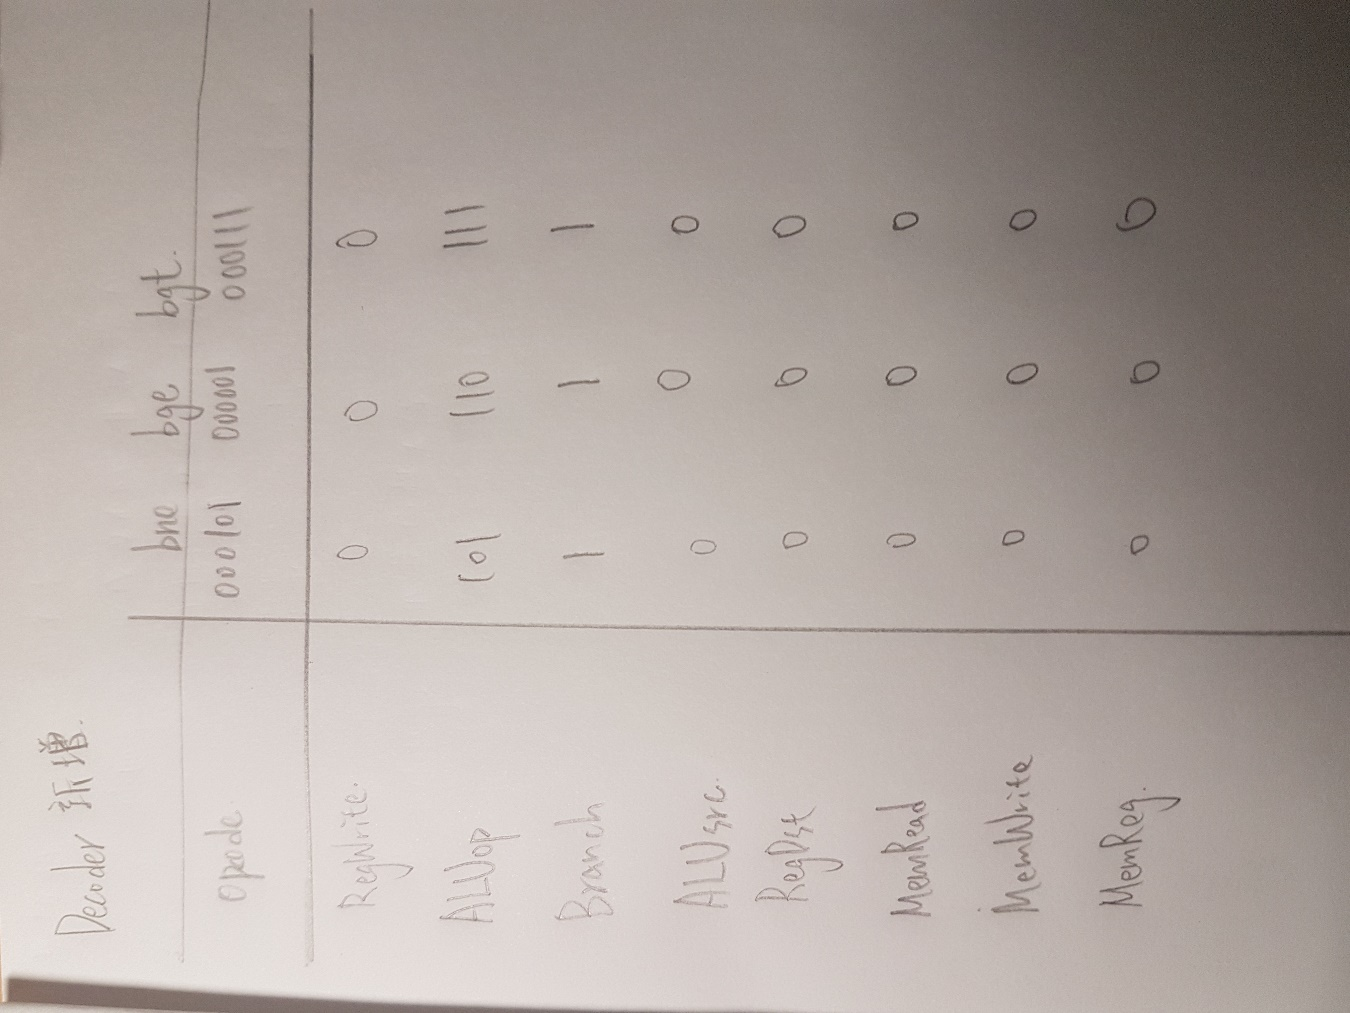 Decoder 新增.
bne bge bgt.
opcode. 000101 000001 000111
RegWrite. 0 0 0
ALUop 101 110 111
Branch 1 1 1
ALUsrc. 0 0 0
RegDst 0 0 0
MemRead 0 0 0
MemWrite 0 0 0
MemReg. 0 0 0